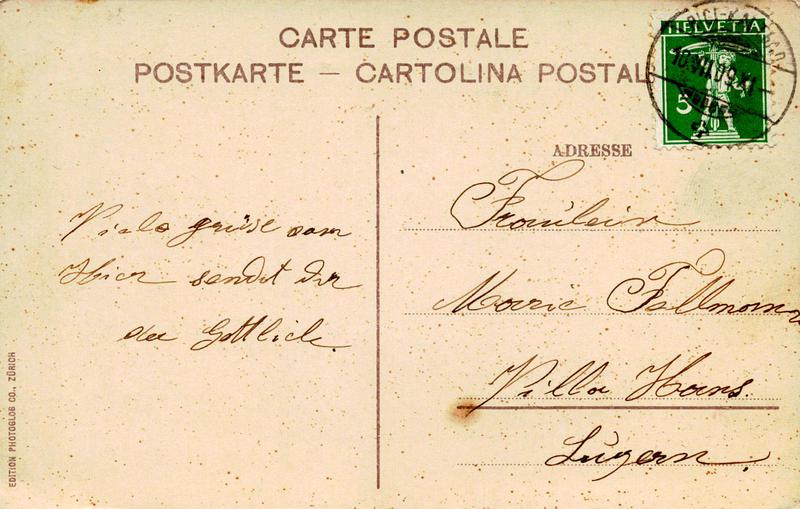 CARTE POSTALE
POSTKARTE – CARTOLINA POSTALE
HELVETIA
5
ADRESSE
Viele grüsse vom
Hier sendet dir
der Gottlieb.
Fräulein
Marie Fellmann
Villa Hans.
Luzern.
EDITION PHOTOGLOB CO., ZÜRICH